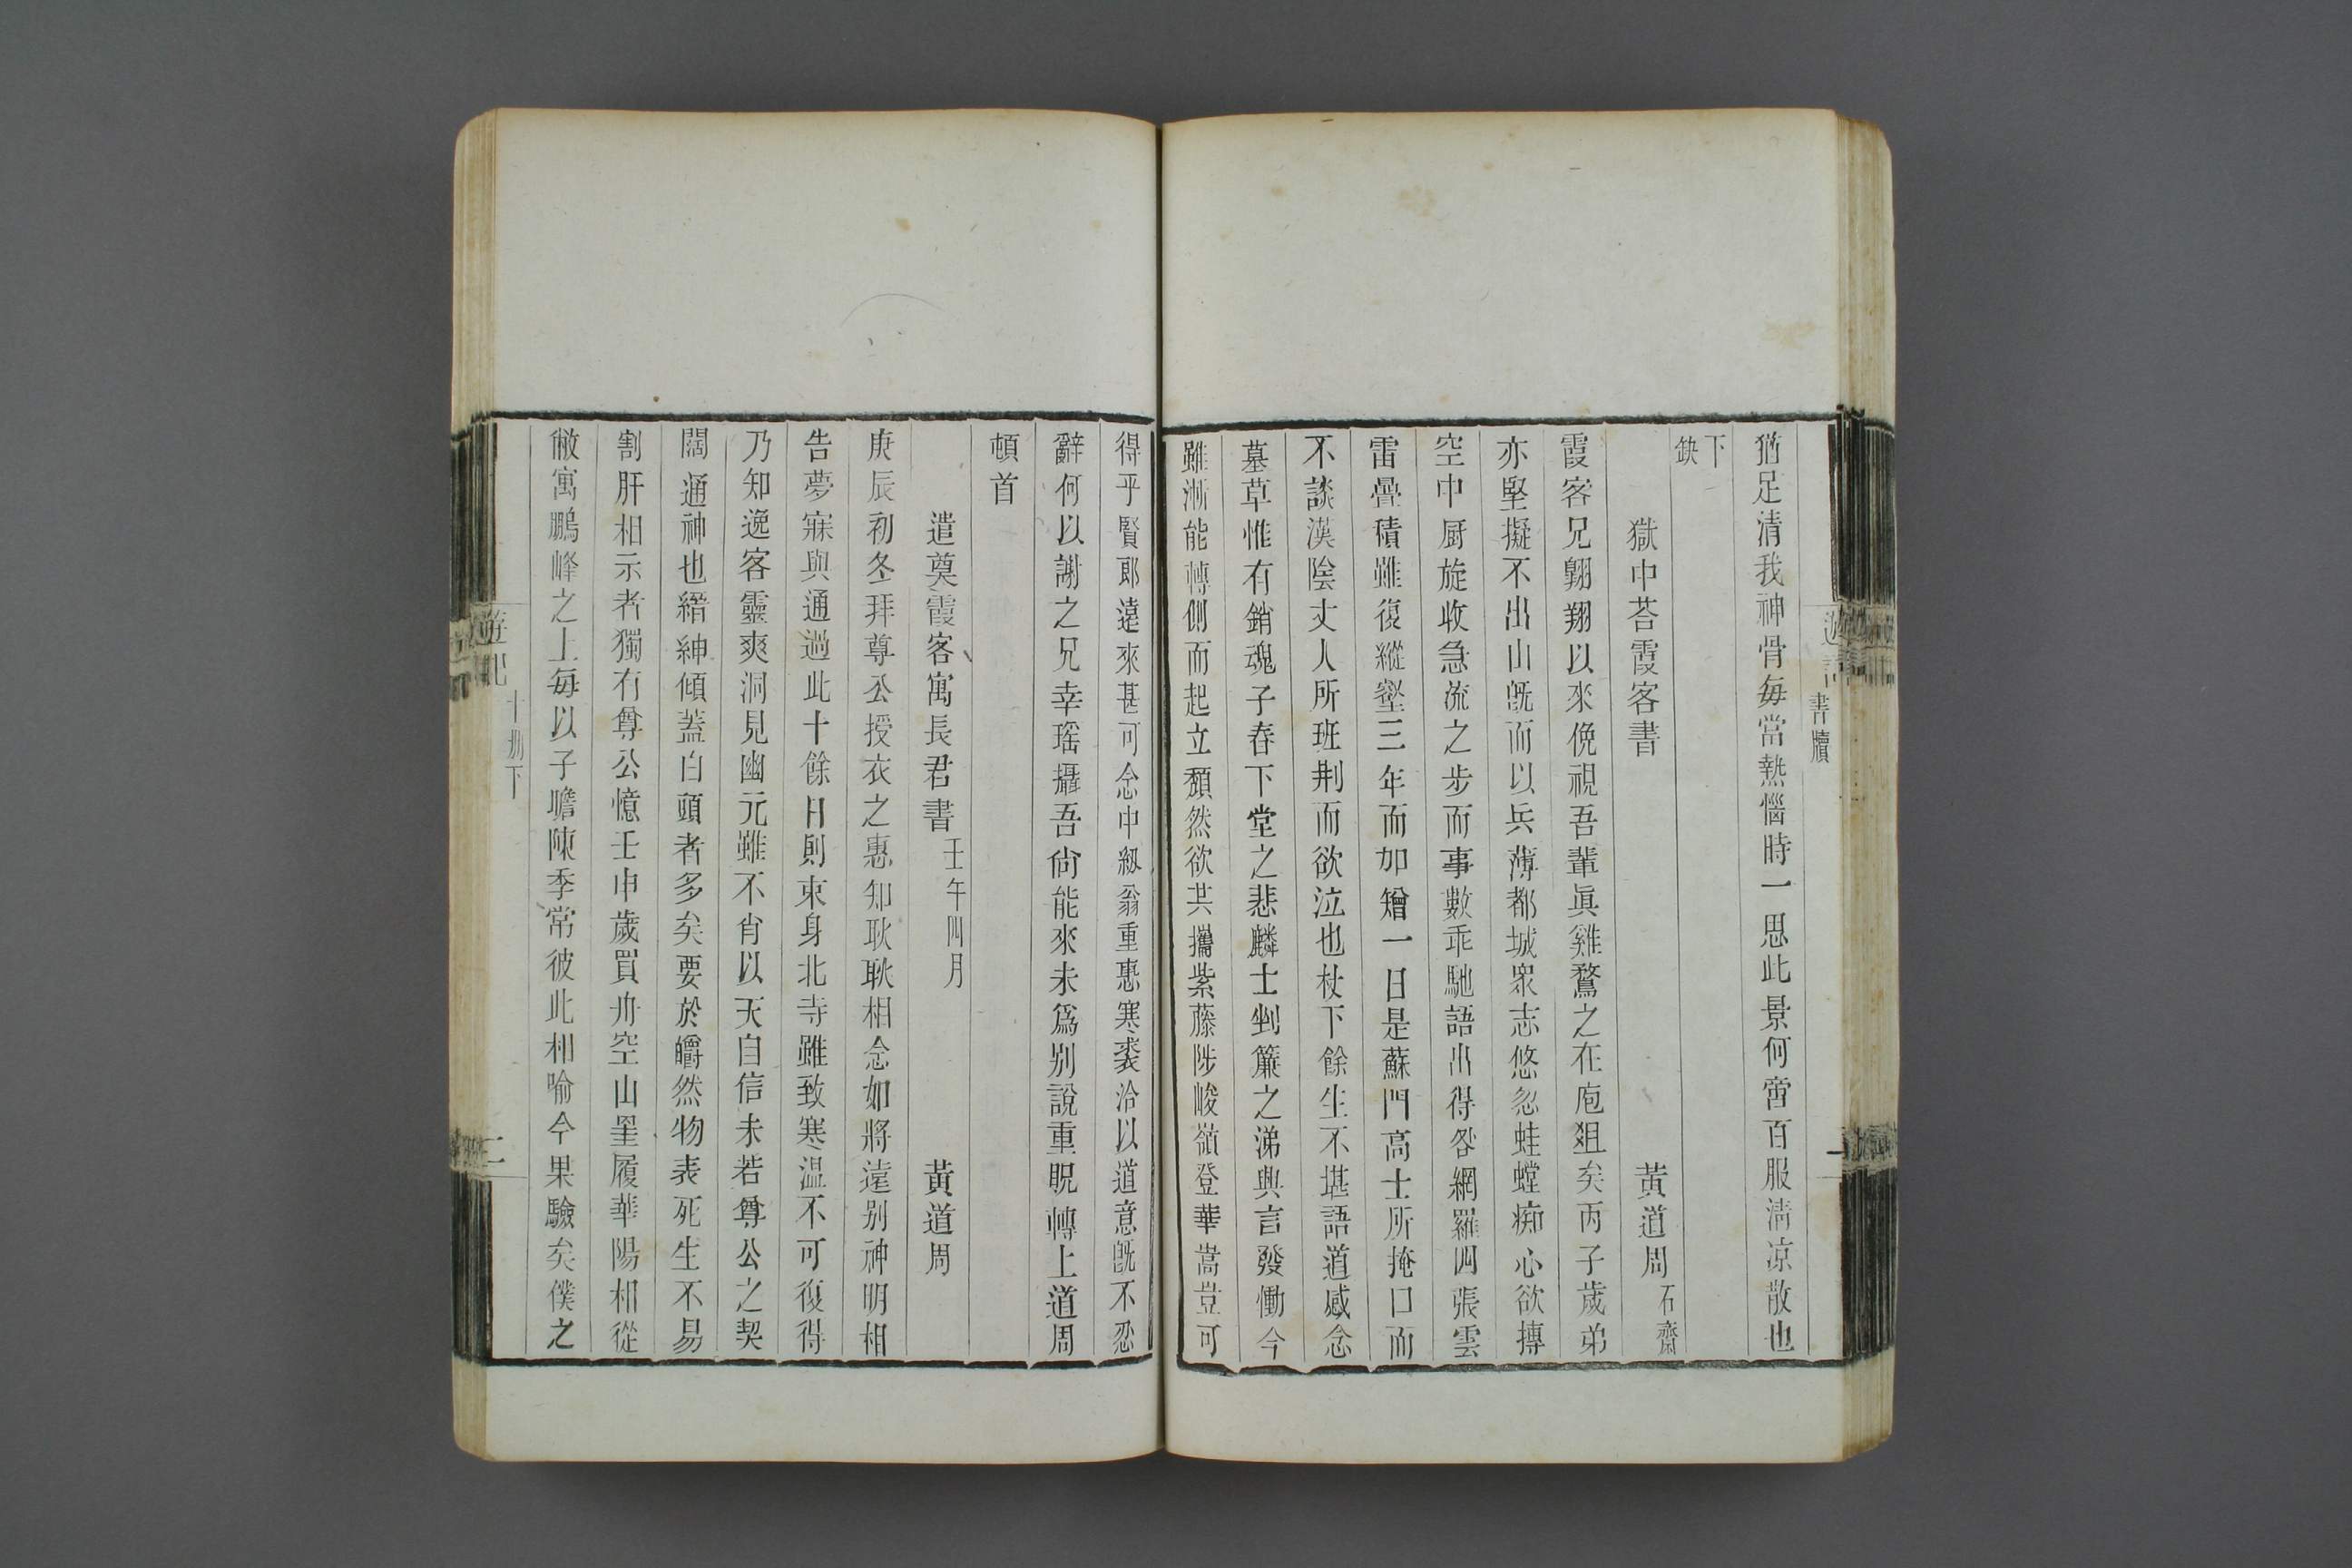 猶足清我神骨每當熱惱時一思此景何啻百服淸凉散也
下缺
獄中荅霞客書 黃道周石齋
霞客兄翺翔以來俛視吾輩眞雞鶩之在庖俎矣丙子歲弟
亦堅擬不出山旣而以兵薄都城衆志悠忽蛙螳痴心欲摶
空中厨旋收急流之步而事數乖馳語出得咎網羅四張雲
雷疊積雖復縱壑三年而加矰一日是蘇門高士所掩口而
不談漢陰丈人所班荆而欲泣也杖下餘生不堪語道感念
墓草惟有銷魂子春下堂之悲麟士剉簾之涕興言發慟今
雖漸能轉側而起立頹然欲共攜紫藤陟峻嶺登華嵩豈可
得乎賢郎遠來甚可念中綴翁重惠寒裘洽以道意旣不忍
辭何以謝之兄幸瑤攝吾尙能來未爲别說重晛轉上道周
頓首
遣奠霞客寓長君書壬午四月 黃道周
庚辰初冬拜尊公授衣之惠知耿耿相念如將遠别神明相
告夢寐與通過此十餘日則束身北寺雖致寒温不可復得
乃知逸客靈爽洞見幽元雖不肖以天自信未若尊公之契
闊通神也縉紳傾蓋白頭者多矣要於皭然物表死生不易
割肝相示者獨有尊公憶壬申歲買舟空山星履華陽相從
敝寓鵬峰之上每以子瞻陳季常彼此相喻今果驗矣僕之
遊記 書牘
遊記 十册下 二